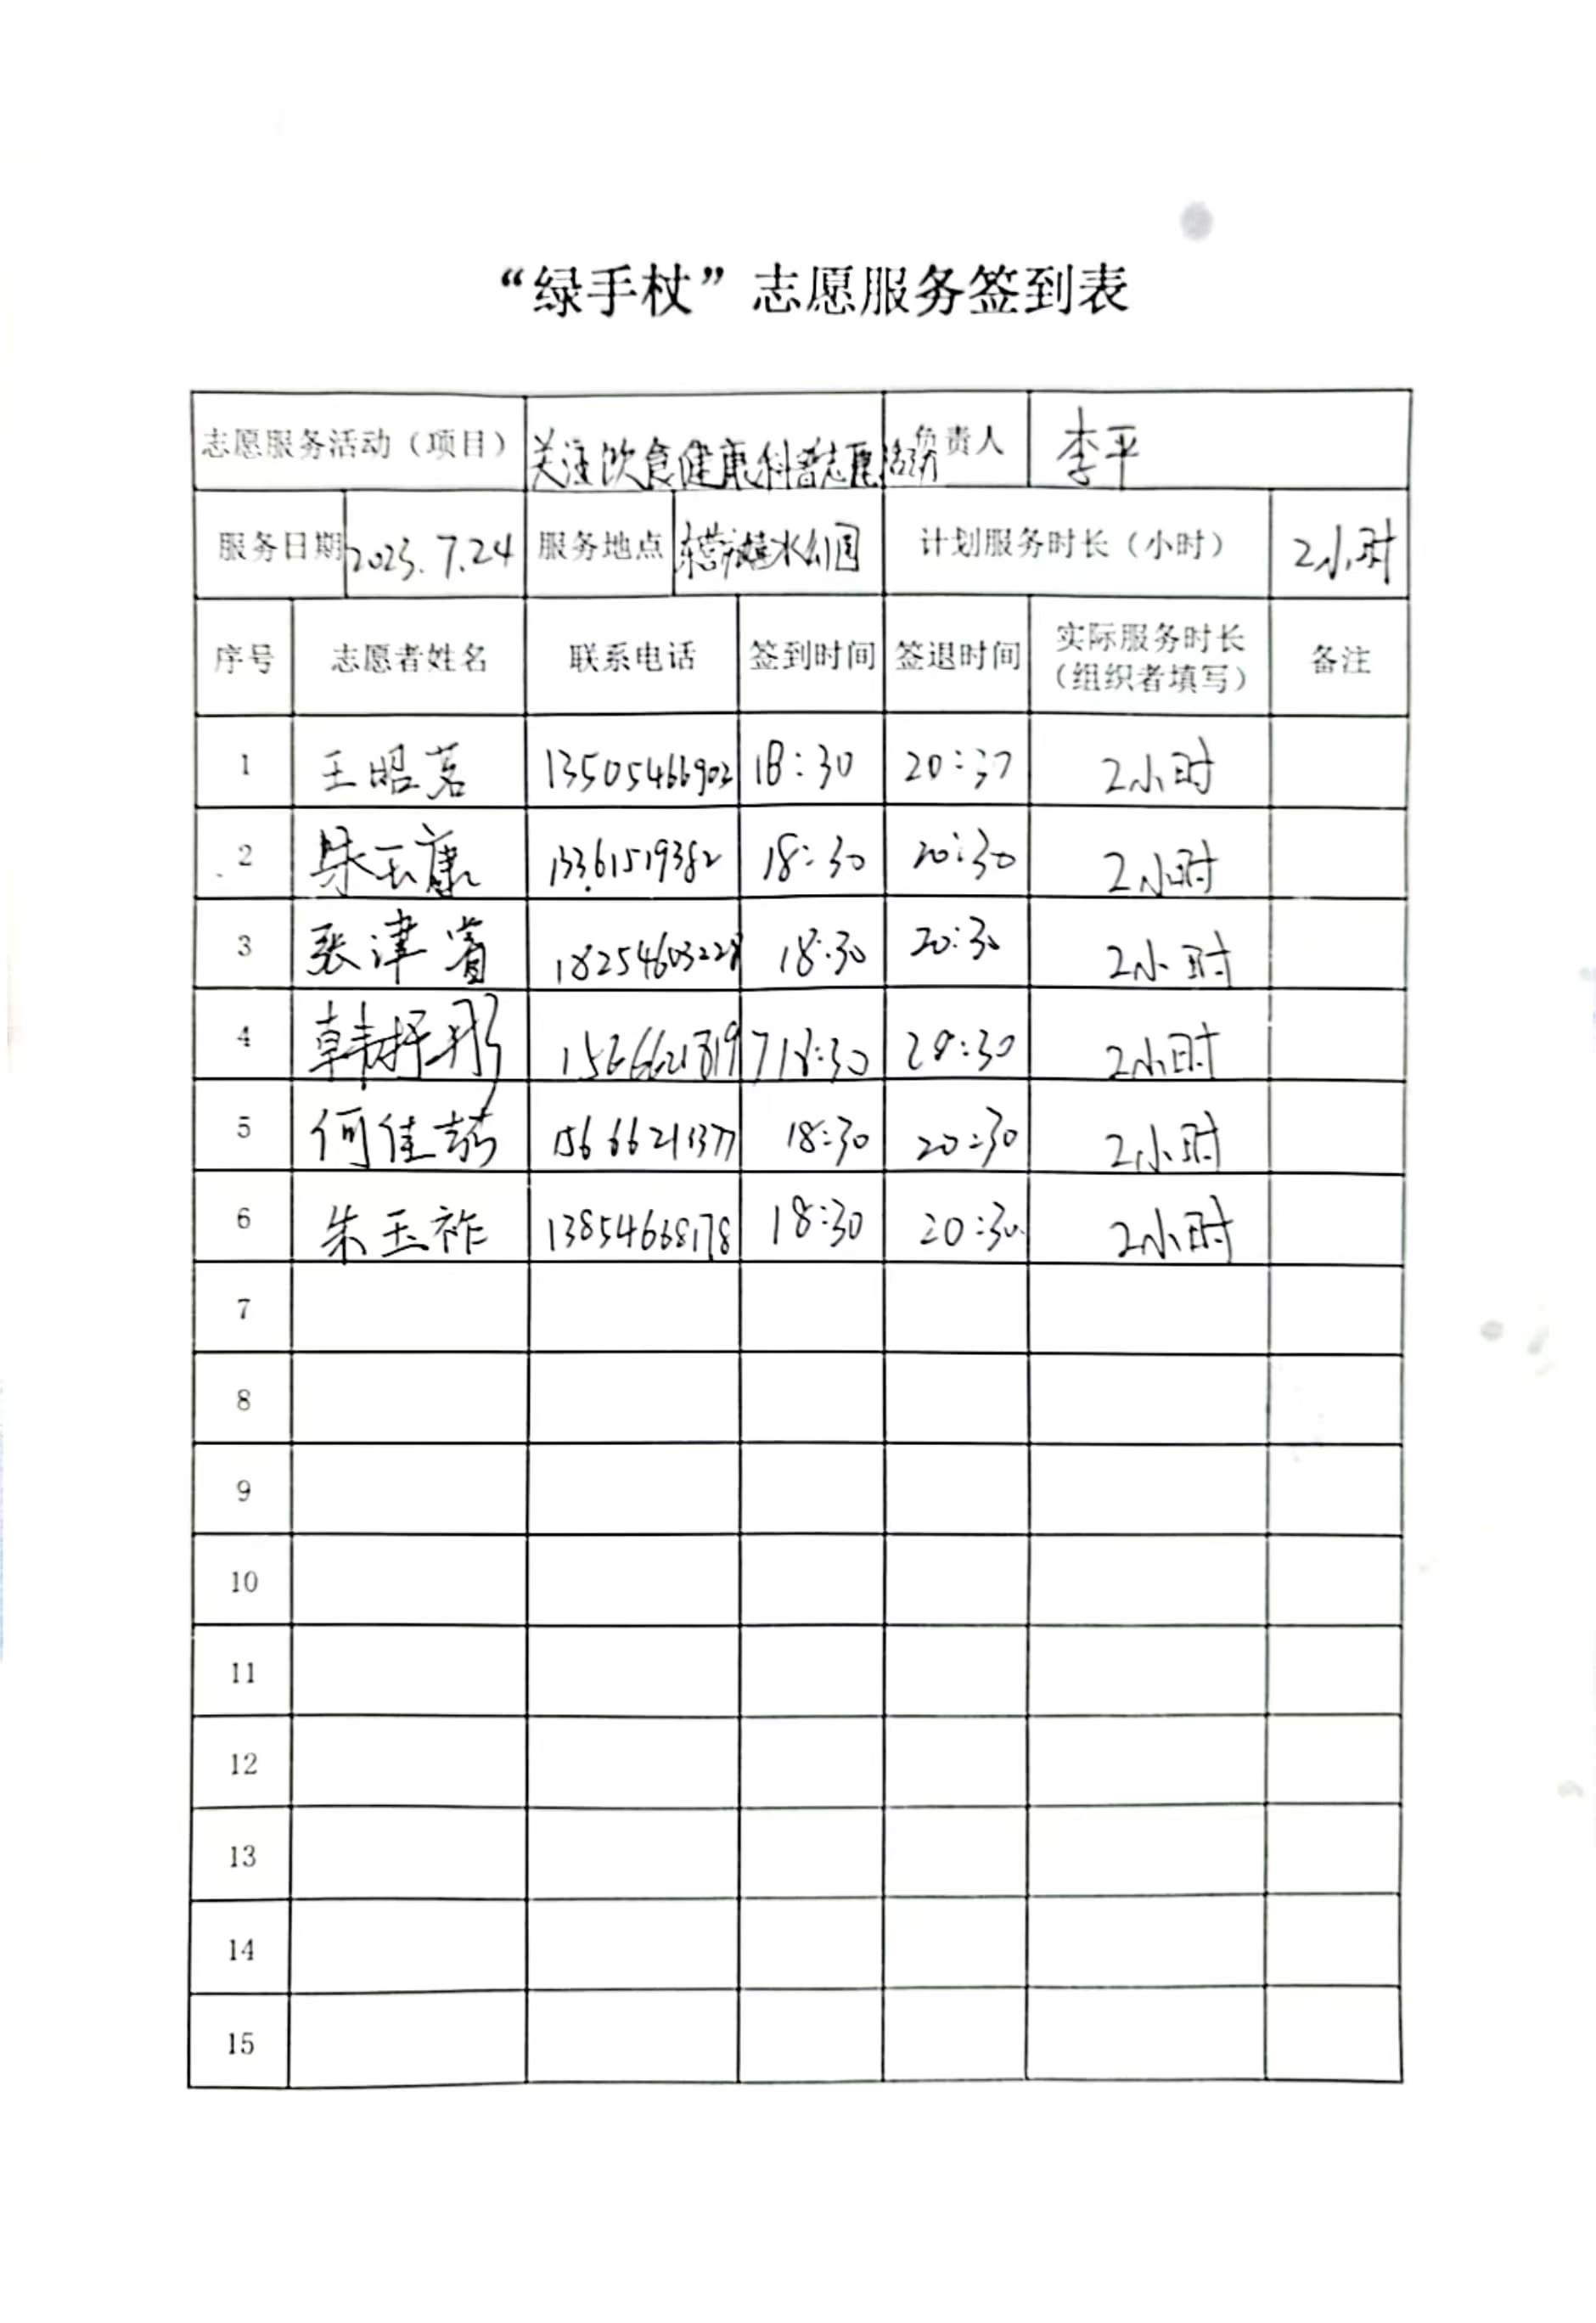 “绿手杖”志愿服务签到表
志愿服务活动（项目） 关注饮食健康科普志愿活动 负责人 李平
服务日期 2023.7.24 服务地点 东营市嬉水公园 计划服务时长（小时） 2小时
序号 志愿者姓名 联系电话 签到时间 签退时间 实际服务时长（组织者填写） 备注
1 王昭茗 13505466902 18:30 20:30 2小时
2 朱玉康 13361519382 18:30 20:30 2小时
3 张津 18254603228 18:30 20:30 2小时
4 韩抒彤 15666218197 18:30 20:30 2小时
5 何佳 15666211377 18:30 20:30 2小时
6 朱玉祚 13854668178 18:30 20:30 2小时
7
8
9
10
11
12
13
14
15